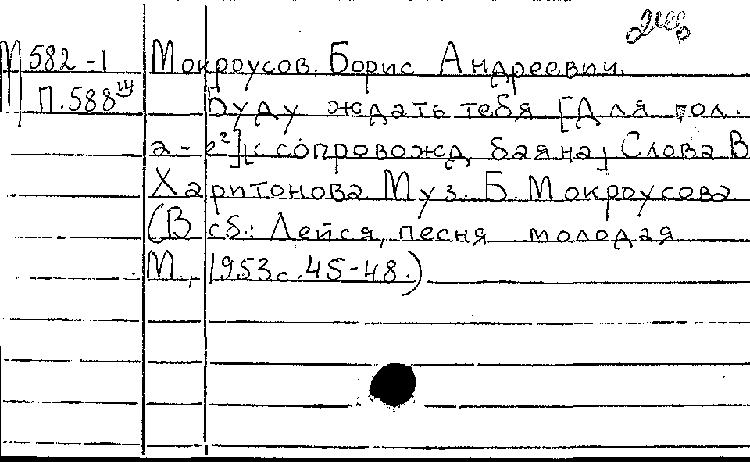 М 582-1 Мокроусов. Борис Андреевич.
П.588ш Буду ждать тебя [Для гол.
а-е²] [: сопровожд. баяна] Слова В
Харитонова Муз. Б Мокроусова
(В сб.: Лейся, песня молодая
М., 1953 с. 45-48.)